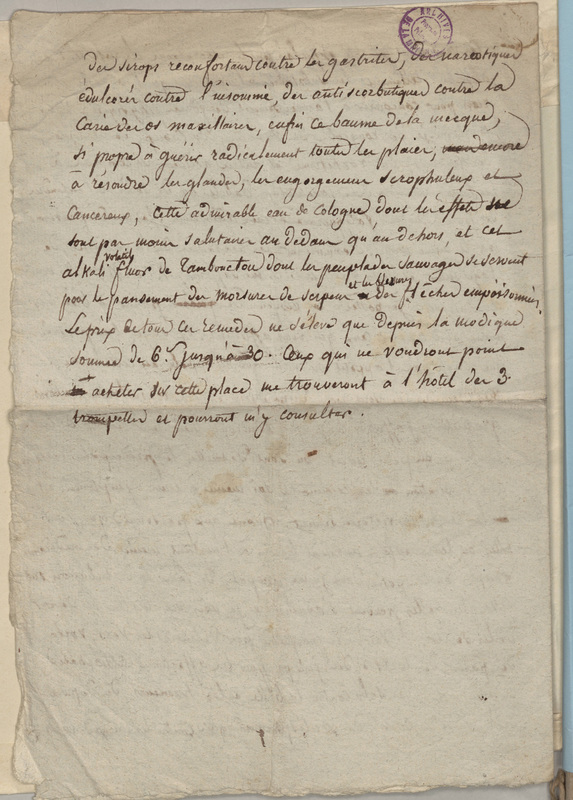 des sirops reconfortans contre les gastrites, des narcotiques
édulcorés contre l'insomnie, des antiscorbutiques contre la
Carie des os maxillaires, enfin ce baume de la mecque,
si propre à guérir radicalement toutes les plaies,
à résoudre les glandes, les engorgemens scrophuleux et
cancereux, cette admirable eau de Cologne dont les effets ne
sont pas moins salutaires au dedans qu'au dehors, et cet
alkali volatil fluor de Tambouctou dont les peuplades sauvages se servent
pour le pansement des morsures de serpens et les blessures des flêches empoisonnées.
Le prix de tous ces remedes ne s'éleve que depuis la modique
somme de 6.s jusqu'à 30. Ceux qui ne voudront point
acheter sur cette place me trouveront à l'hôtel des 3.
trompettes et pourront m'y consulter.